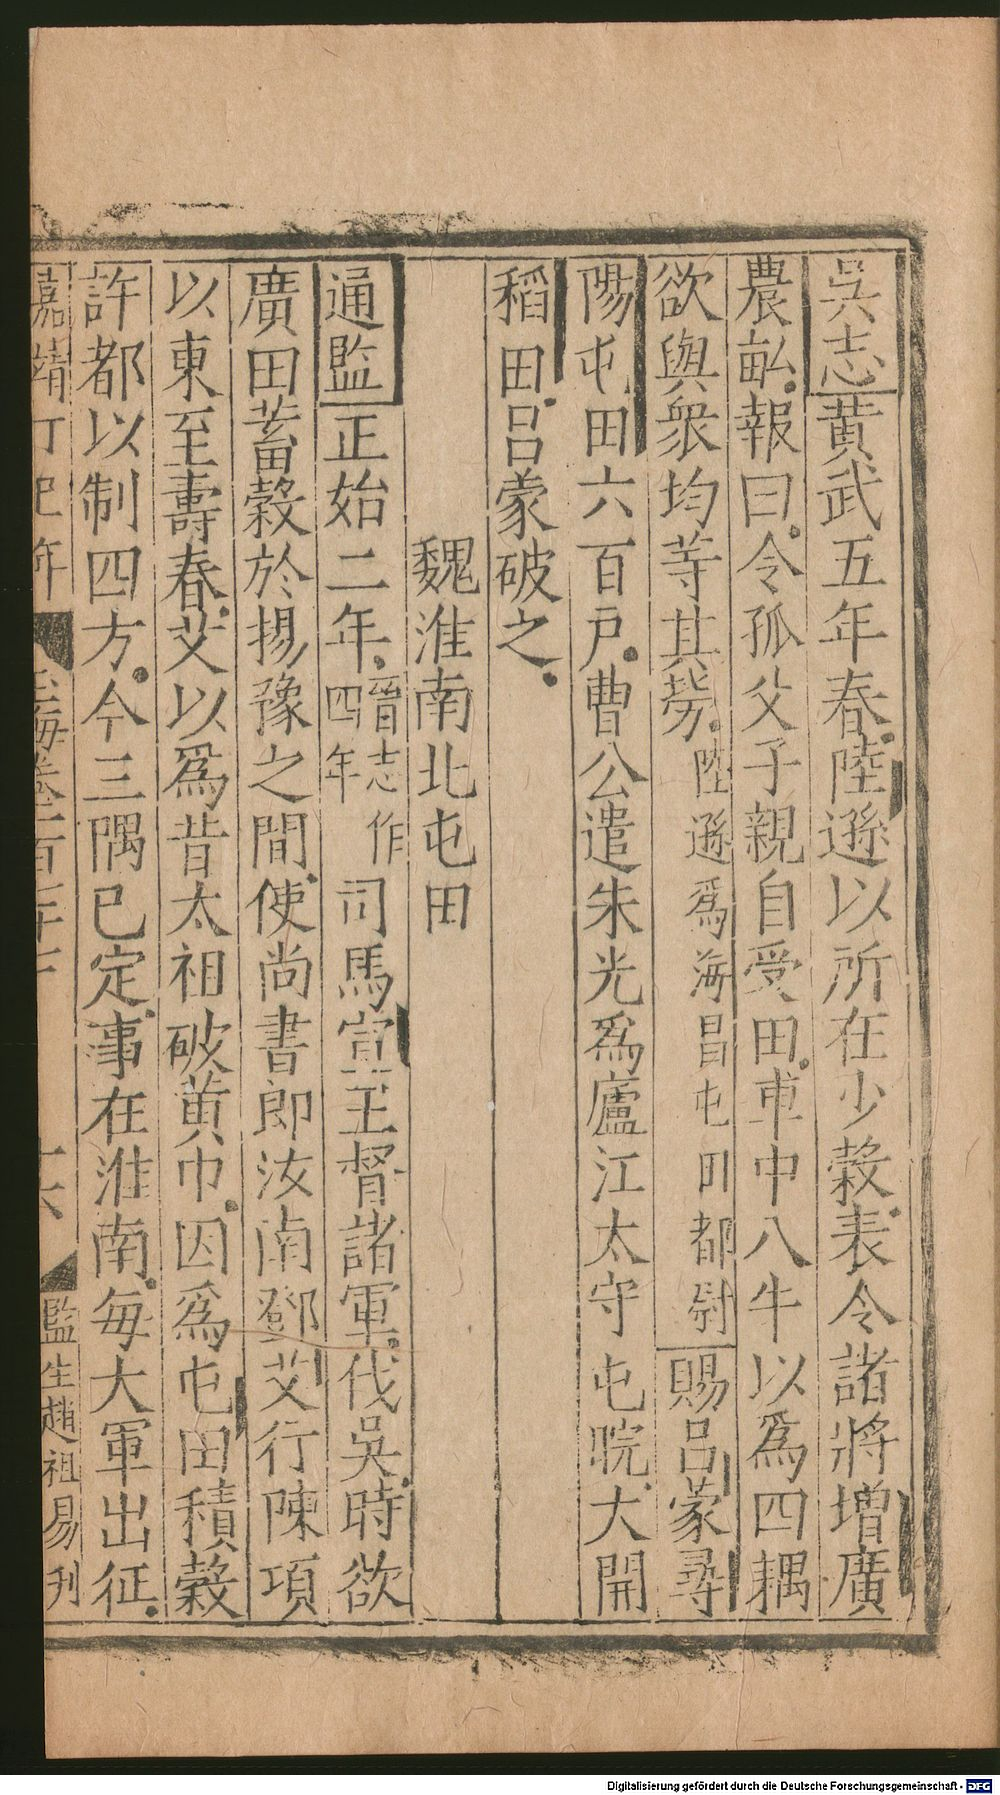 吳志黃武五年春陸遜以所在少穀表令諸將增廣
農畝報曰令孤父子親自受田車中八牛以爲四耦
欲與衆均等其勞陸遜爲海昌屯田都尉賜呂蒙尋
陽屯田六百戸曹公遣朱光爲廬江太守屯皖大開
稻田呂蒙破之
魏淮南北屯田
通監正始二年晉志作四年司馬宣王督諸軍伐吳時欲
廣田蓄穀於揚豫之間使尚書郎汝南鄧艾行陳項
以東至壽春艾以爲昔太祖破黃巾因爲屯田積穀
許都以制四方今三隅已定事在淮南每大軍出征
嘉靖丁巳年
玉海卷一百
十六
監生趙祖易刋
Digitalisierung gefördert durch die Deutsche Forschungsgemeinschaft - DFG